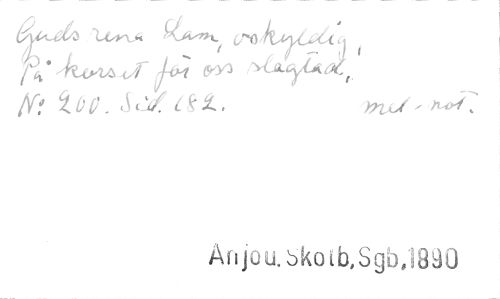 Guds rena Lam, oskyldig,
På korset för oss slagtad,
No 200. Sid. 182. mel-not.
Anjou. Skolb, Sgb, 1890